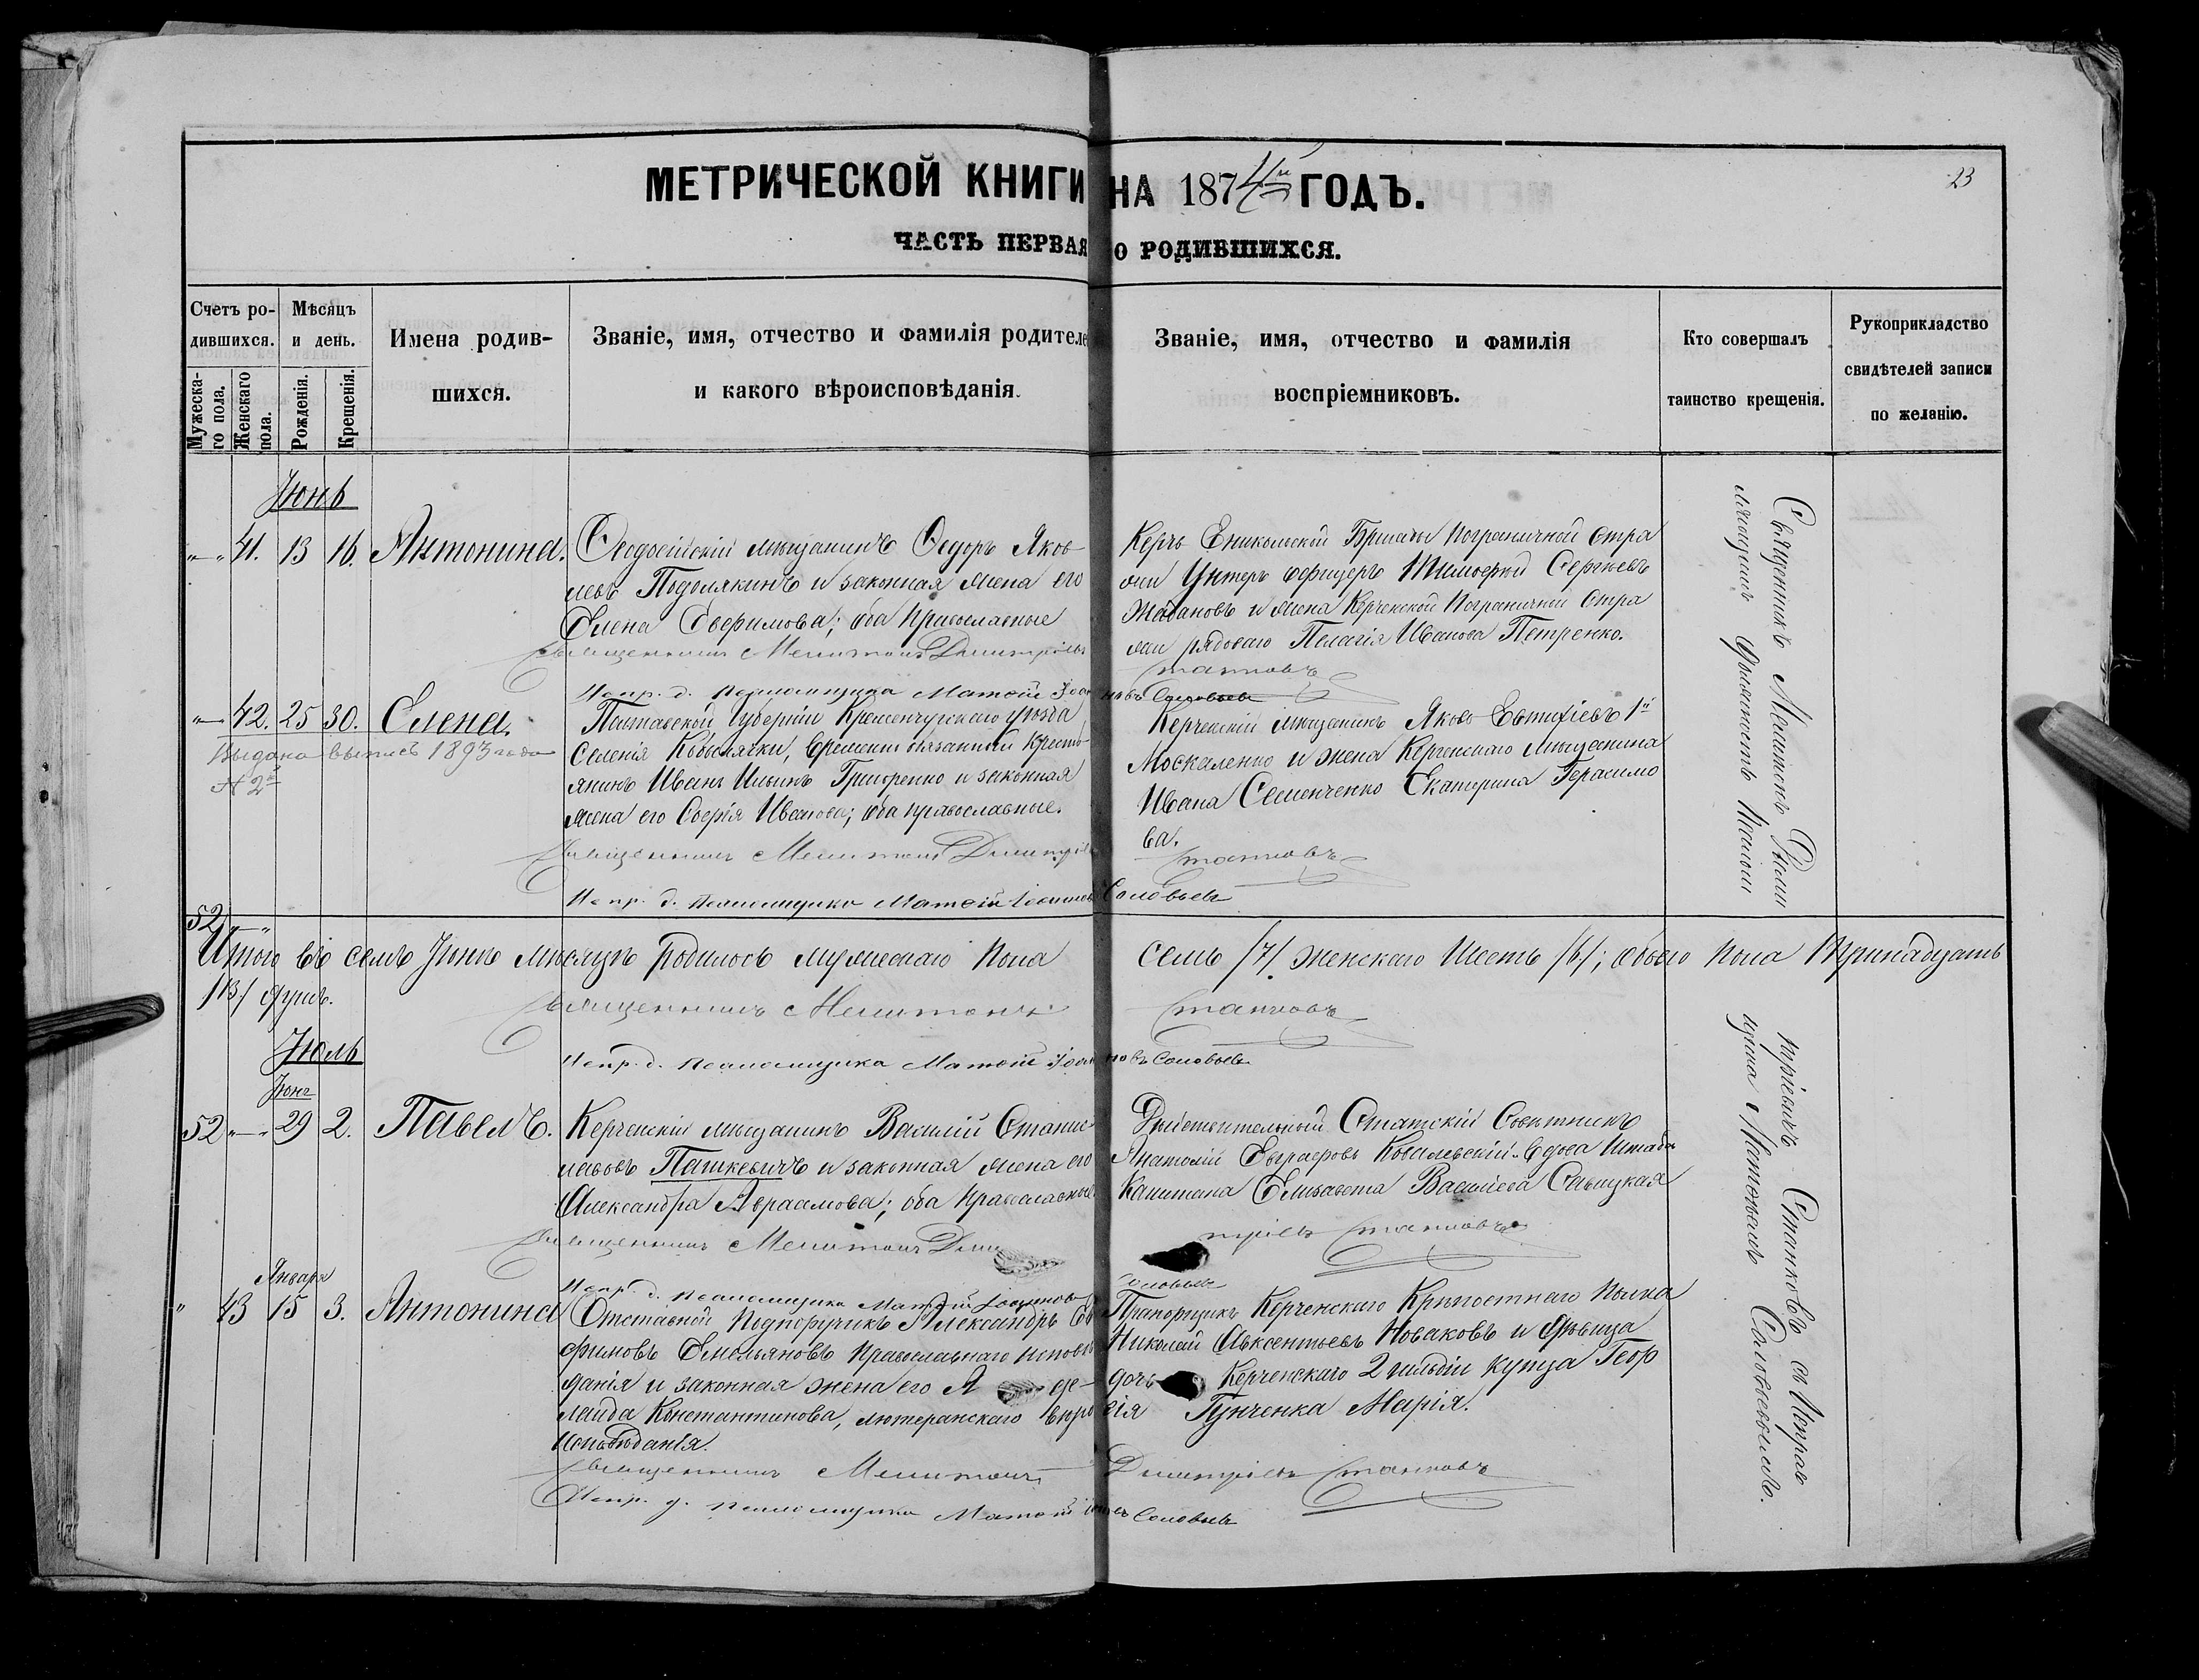 МЕТРИЧЕСКОЙ КНИГИ НА 1874й ГОДЪ.
23
ЧАСТЬ ПЕРВАЯ О РОДИВШИХСЯ.
Счетъ ро-
дившихся.
Мужеска-
го пола.
Женскаго
пола.
Мѣсяцъ
и день.
Рожденія.
Крещенія.
Имена родив-
шихся.
Званіе, имя, отчество и фамилія родителе
и какого вѣроисповѣданія.
Званіе, имя, отчество и фамилія
воспріемниковъ.
Кто совершалъ
таинство крещенія.
Рукоприкладство
свидѣтелей записи
по желанію.
Іюнь
41. 13 16. Антонина.
Ѳеодосійскій мѣщанинъ Ѳедоръ Яков
левъ Подолякинъ и законная жена его
Елена Евфимова; оба православные
Священникъ Мелитонъ Димитріевъ
Станковъ
Испр. д. псаломщика Матѳій Іоанновъ Соловьевъ
Керчь Еникольской Бригады Пограничной Стра
жи Унтеръ офицеръ Тимофей Сергѣевъ
Жадановъ и жена Керченской Пограничной Стра
жи рядоваго Пелагія Иванова Петренко.
42. 25 30. Елена.
Выдана выпись 1893 года
№ 2й
Полтавской Губерніи Кременчугскаго уѣзда
Селенія Кобылячки, временно обязанный кресть-
янинъ Иванъ Ильинъ Григоренко и законная
жена его Софія Иванова; оба православные.
Священникъ Мелитонъ Димитріевъ
Станковъ
Испр. д. псаломщика Матѳій Іоанновъ Соловьевъ
Керченскій мѣщанинъ Яковъ Евтихіевъ 1й
Москаленко и жена Керченскаго мѣщанина
Ивана Семенченко Екатерина Герасимо
ва.
Священникъ Мелитонъ Дими
тріевичъ Станковъ съ Исправ
ляющимъ должность Псалом
щика Матѳеемъ Соловьевымъ.
52
Итого въ семъ Іюнѣ мѣсяцѣ родилось мужескаго пола семь /7/. женскаго шесть /6/; обоего пола тринадцать
/13/ душъ.
Священникъ Мелитонъ Станковъ
Испр. д. псаломщика Матѳій Іоанновъ Соловьевъ
Іюль
Іюня
52 29 2. Павелъ.
Керченскій мѣщанинъ Василій Станис
лавовъ Пашкевичъ и законная жена его
Александра Авраамова; оба православные
Священникъ Мелитонъ Димитріевъ Станковъ
Испр. д. псаломщика Матѳій Іоанновъ Соловьевъ
Дѣйствительный Статскій Совѣтникъ
Анатолій Евграфовъ Ковалевскій и вдова Штабъ
Капитана Елизавета Васильева Савицкая
Января
43 15 3. Антонина
Отставной Подпоручикъ Александръ Ев
фимовъ Емельяновъ Православнаго исповѣ
данія и законная жена его А де-
лаида Константинова, лютеранскаго вѣро
исповѣданія.
Прапорщикъ Керченскаго Крѣпостнаго Полка
Николай Авксентьевъ Новаковъ и дѣвица
дочь Керченскаго 2 гильдіи купца Геор
гія Гунченка Марія.
Священникъ Мелитонъ Димитріевъ Станковъ
Испр. д. псаломщика Матѳій Соловьевъ